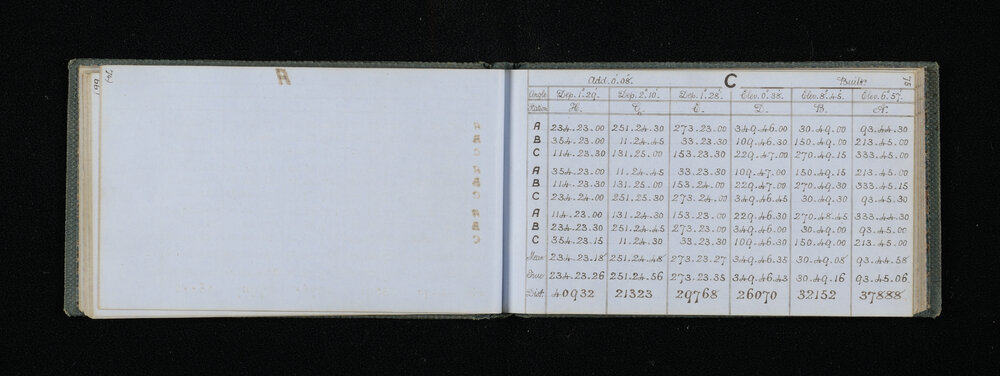 A
Add. 0'.08". C Built 75
Angle Dep. 1°.29' Dep. 2°.10' Dep. 1°.28' Elev. 0°.38' Elev. 8°.45' Elev. 6°.57'
Station H. G. E. D. B. A.
A 234.23.00 251.24.30 273.23.00 349.46.00 30.49.00 93.44.30
B 354.23.00 11.24.45 33.23.30 109.46.30 150.49.00 213.45.00
C 114.23.30 131.25.00 153.23.30 229.47.00 270.49.15 333.45.00
A 354.23.00 11.24.45 33.23.30 109.47.00 150.49.15 213.45.00
B 114.23.30 131.25.00 153.24.00 229.47.00 270.49.30 333.45.15
C 234.24.00 251.25.30 273.24.00 349.46.45 30.49.30 93.45.30
A 114.23.00 131.24.30 153.23.00 229.46.30 270.48.45 333.44.30
B 234.23.30 251.24.45 273.23.00 349.46.00 30.49.00 93.45.00
C 354.23.15 11.24.30 33.23.30 109.46.30 150.49.00 213.45.00
Mean 234.23.18 251.24.48 273.23.27 349.46.35 30.49.08 93.44.58
True 234.23.26 251.24.56 273.23.35 349.46.43 30.49.16 93.45.06
Dist. 40932 21323 29768 26070 32152 37888